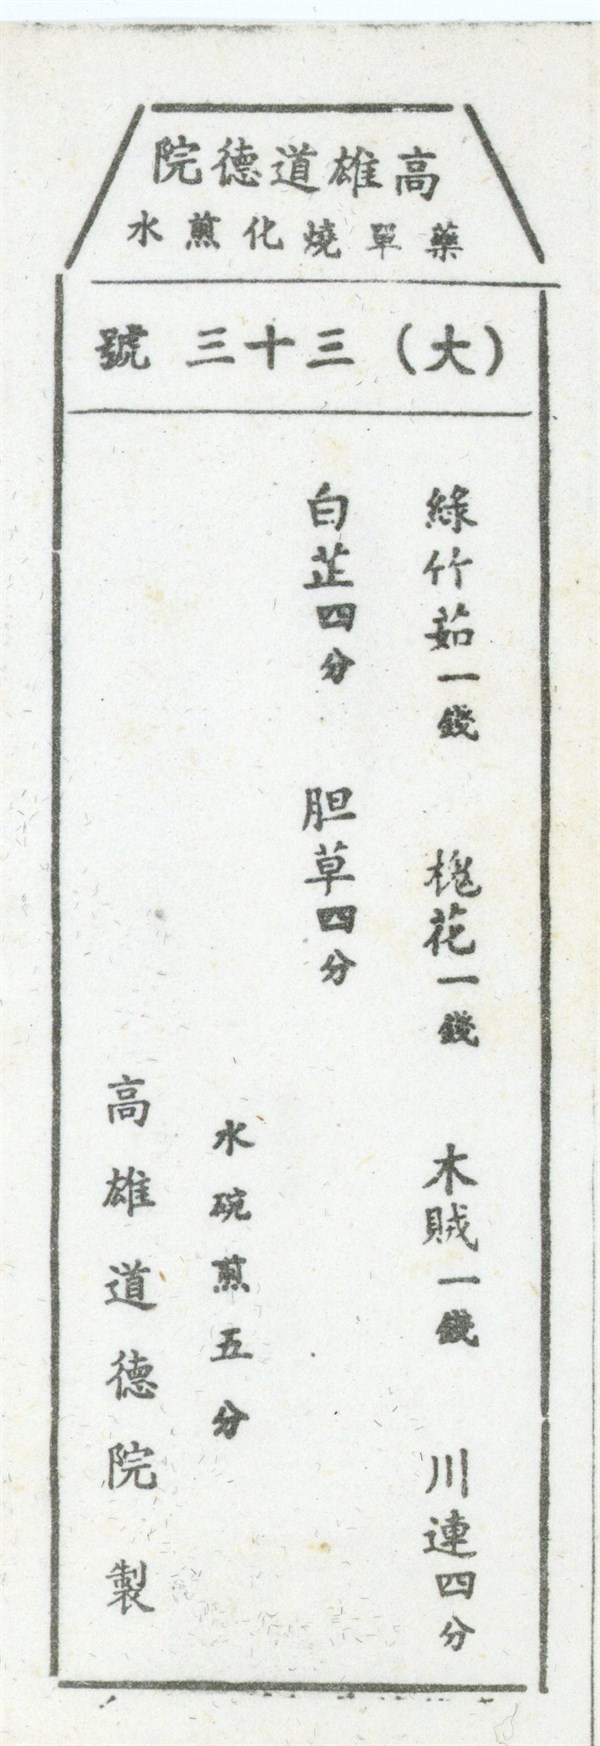 高雄道德院
藥單燒化煎水
（大）三十三號
綠竹茹一錢 槐花一錢 木賊一錢 川連四分
白芷四分 胆草四分
水碗煎五分
高雄道德院製